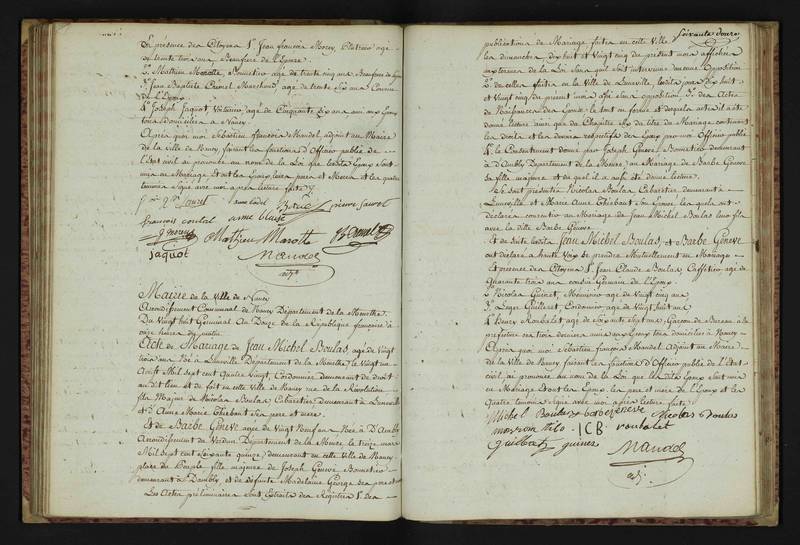 En présence des Citoyens 1er Jean francois Morey, age
de trente trois ans Beaufrere de l'Epoux.
2. Mathieu Marotte, Domestico agé de trente cinq ans Beaufrere
3. Jean Baptiste Marchand, age de trente six ans Cousin
de l'Epoux
4. Joseph Jaquot, Voiturier agé de Cinquante six ans
tous domiciliés a Nancy.
Après quoi moi Sébastien françois Mandel, adjoint au Maire
de la Ville de Nancy, faisant les fonctions d'Officier public de
l'état civil ai prononcé au nom de la Loi que lesdits Epoux sont
unis en Mariage Et ont les Epoux, leurs peres et Meres et les quatre
temoins signé avec moi après lecture faite
anne claude
pierre
francois
anne
Mathieu Marotte
jaquot
Mandel
adjt
Mairie de la Ville de Nancy
Arrondissement Communal de Nancy Département de la Meurthe
Du Vingt huit Germinal An Douze de la République française à
onze heures du matin
Acte de Mariage de Jean Michel Boulas, agé de Vingt
trois ans Né à Lunéville Département de la Meurthe le Vingt un
Aoust Mil Sept cent quatre Vingt, Cordonnier demeurant de droit
audit lieu et de fait en cette Ville de Nancy rue de la Révolution
fils Majeur de Nicolas Boulas Cabaretier Demeurant à Lunéville
et d'Anne Marie Thiebaut ses pere et mere.
Et de Barbe Genève agée de Vingt Neuf ans Née à
Arrondissement de Verdun Département de la Meuse le treize mars
Mil Sept cent soixante quinze, demeurant en cette Ville de Nancy
place du Peuple fille majeure de Joseph Genevé Domestico
demeurant à Dombly, et de défunte Madelaine George ses pere et mere
Les Actes préliminaires sont Extraits des Registres 1. des
Soixante douze
publications de Mariage faites en cette Ville
les dimanches dix huit et Vingt cinq du présent mois affichées
aux termes de la Loi sans qu'il soit intervenu aucune Opposition
2. de celles faites en la Ville de Lunéville lesdits jours dix huit
et Vingt cinq du présent mois aussi sans opposition 3. des Actes
de Naissances des Epoux le tout en forme et desquels actes il a été
donné lecture ainsi que du Chapitre six du titre du Mariage contenant
les droits et les devoirs respectifs des Epoux par moi Officier public
4. le Consentement donné par Joseph Genevé Domestico demeurant
à Dombly Département de la Meuse, au Mariage de Barbe Genève
sa fille majeure et duquel il a aussi été donné lecture.
Se sont présentés Nicolas Boulas Cabaretier, demeurant à
Lunéville et Marie Anne Thiebaut son Epouse, lesquels ont
declaré consentir au Mariage de Jean Michel Boulas leur fils
avec la ditte Barbe Genève.
Et de suite lesdits Jean Michel Boulas, et Barbe Genève
ont déclaré à haute Voix se prendre Mutuellement en Mariage
En présence des Citoyens 1. Jean Claude Boulas, Caffetier agé de
Quarante trois ans cousin Germain de l'Epoux
2. Nicolas Guinet, Menuisier agé de Vingt cinq ans
3. Leger Guilleret, Cordonnier agé de Vingt huit ans
4. Henry Roubalet agé de soixante huit ans, Garçon de Bureau à la
préfecture ces trois derniers amis aux Epoux tous domiciliés à Nancy
Après quoi moi Sébastien françois Mandel Adjoint au Maire
de la Ville de Nancy faisant les fonctions d'Officier public de l'Etat
civil, ai prononcé au nom de la Loi que lesdits Epoux sont unis
en Mariage Et ont les Epoux, les pere et mere de l'Epoux et les
Quatre temoins signé avec moi après lecture faite
Michel Boulas barbe geneve Nicolas Boulas
ICB roubalet
guilleret guinet
Mandel
adj.